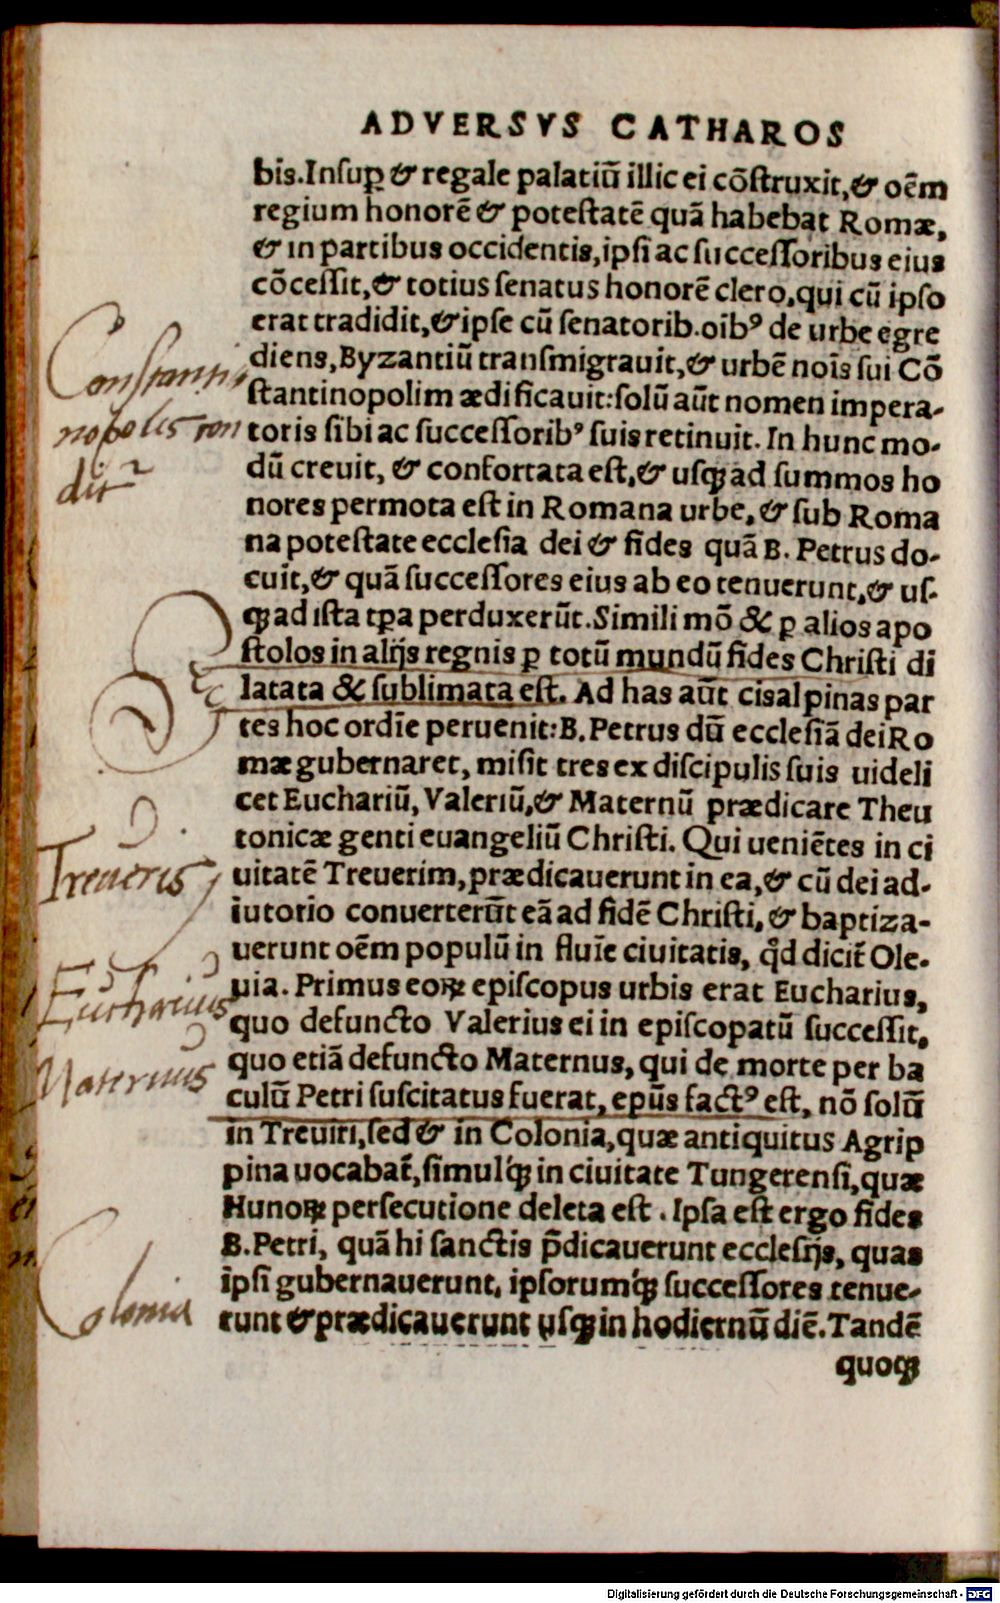 ADVERSVS CATHAROS
bis.Insuꝑ & regale palatiū illic ei cōstruxit,& oēm
regium honorē & potestatē quā habebat Romæ,
& in partibus occidentis,ipsi ac successoribus eius
cōcessit,& totius senatus honorē clero,qui cū ipso
erat tradidit,& ipse cū senatorib.oībꝰ de urbe egre
diens,Byzantiū transmigrauit,& urbē noīs sui Cō
stantinopolim ædificauit:solū aūt nomen impera-
toris sibi ac successoribꝰ suis retinuit. In hunc mo-
dū creuit, & confortata est,& usqꝫ ad summos ho
nores permota est in Romana urbe,& sub Roma
na potestate ecclesia dei & fides quā B. Petrus do-
cuit,& quā successores eius ab eo tenuerunt,& us-
qꝫ ad ista tꝑa perduxerūt.Simili mō & ꝑ alios apo
stolos in alijs regnis ꝑ totū mundū fides Christi di
latata & sublimata est. Ad has aūt cisalpinas par
tes hoc ordīe peruenit:B.Petrus dū ecclesiā dei Ro
mæ gubernaret, misit tres ex discipulis suis uideli
cet Euchariū, Valeriū,& Maternū prædicare Theu
tonicæ genti euangeliū Christi. Qui ueniētes in ci
uitatē Treuerim,prædicauerunt in ea,& cū dei ad-
iutorio conuerterūt eā ad fidē Christi,& baptiza-
uerunt oēm populū in fluīe ciuitatis, qd̄ dicit̄ Ole-
uia. Primus eoꝝ episcopus urbis erat Eucharius,
quo defuncto Valerius ei in episcopatū successit,
quo etiā defuncto Maternus, qui de morte per ba
culū Petri suscitatus fuerat, epūs factꝰ est, nō solū
in Treuiri,sed & in Colonia,quæ antiquitus Agrip
pina uocabat̄,simulqꝫ in ciuitate Tungerensi,quæ
Hunoꝝ persecutione deleta est. Ipsa est ergo fides
B.Petri, quā hi sanctis p̄dicauerunt ecclesijs, quas
ipsi gubernauerunt, ipsorumqꝫ successores tenue-
runt & prædicauerunt usqꝫ in hodiernū diē.Tandē
quoqꝫ
Constanti
nopolis con
ditr
Treueris
Eucharius
Maternus
Colonia
Digitalisierung gefördert durch die Deutsche Forschungsgemeinschaft - DFG